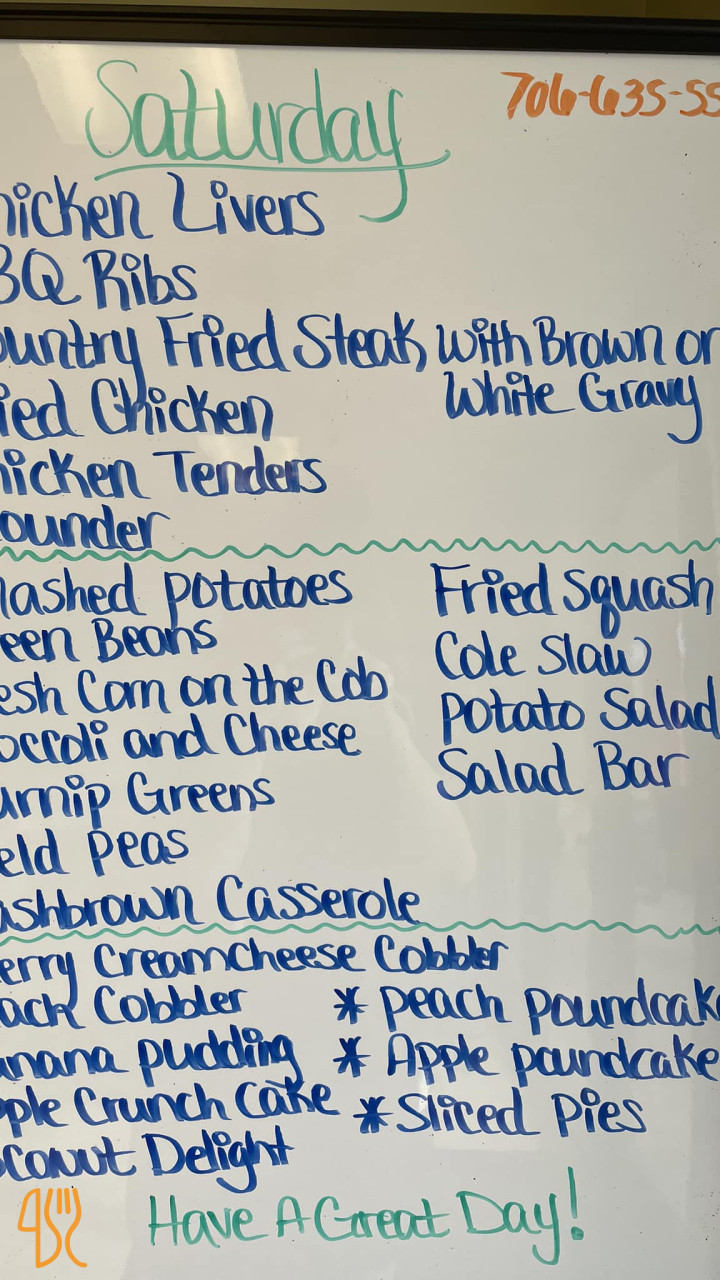 Saturday
706-635-55
hicken Livers
BQ Ribs
ountry Fried Steak with Brown or
White Gravy
ied Chicken
hicken Tenders
ounder
lashed potatoes
een Beans
esh Corn on the Cob
occoli and Cheese
urnip Greens
eld peas
ashbrown Casserole
Fried Squash
Cole Slaw
potato Salad
Salad Bar
erry Creamcheese Cobbler
ack Cobbler
anana pudding
pple Crunch Cake
oconut Delight
* peach poundcake
* Apple poundcake
* Sliced Pies
Have A Great Day!